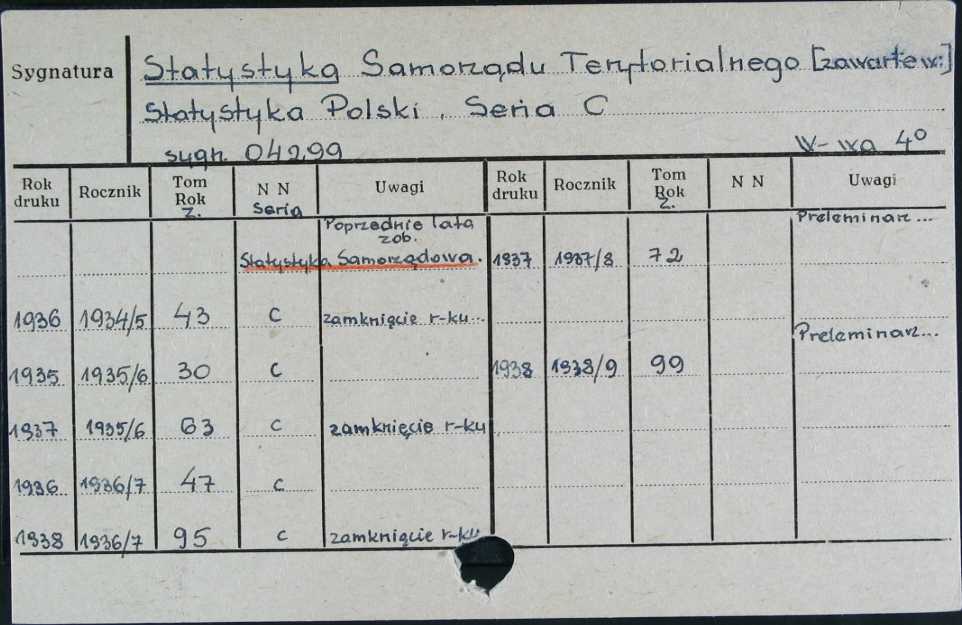 Sygnatura
Statystyka Samorządu Terytorialnego [zawarte w:]
Statystyka Polski, Seria C
sygn. 04299 W-wa 4°
Rok druku Rocznik Tom Rok z. N N Seria Uwagi Rok druku Rocznik Tom Rok z. N N Uwagi
Poprzednie lata
zob.
Statystyka Samorządowa. 1937 1937/8 72 Preleminarz...
1936 1934/5 43 C zamknięcie r-ku...
1935 1935/6 30 C 1938 1938/9 99 Preleminarz...
1937 1935/6 63 C zamknięcie r-ku
1936 1936/7 47 C
1938 1936/7 95 C zamknięcie r-ku